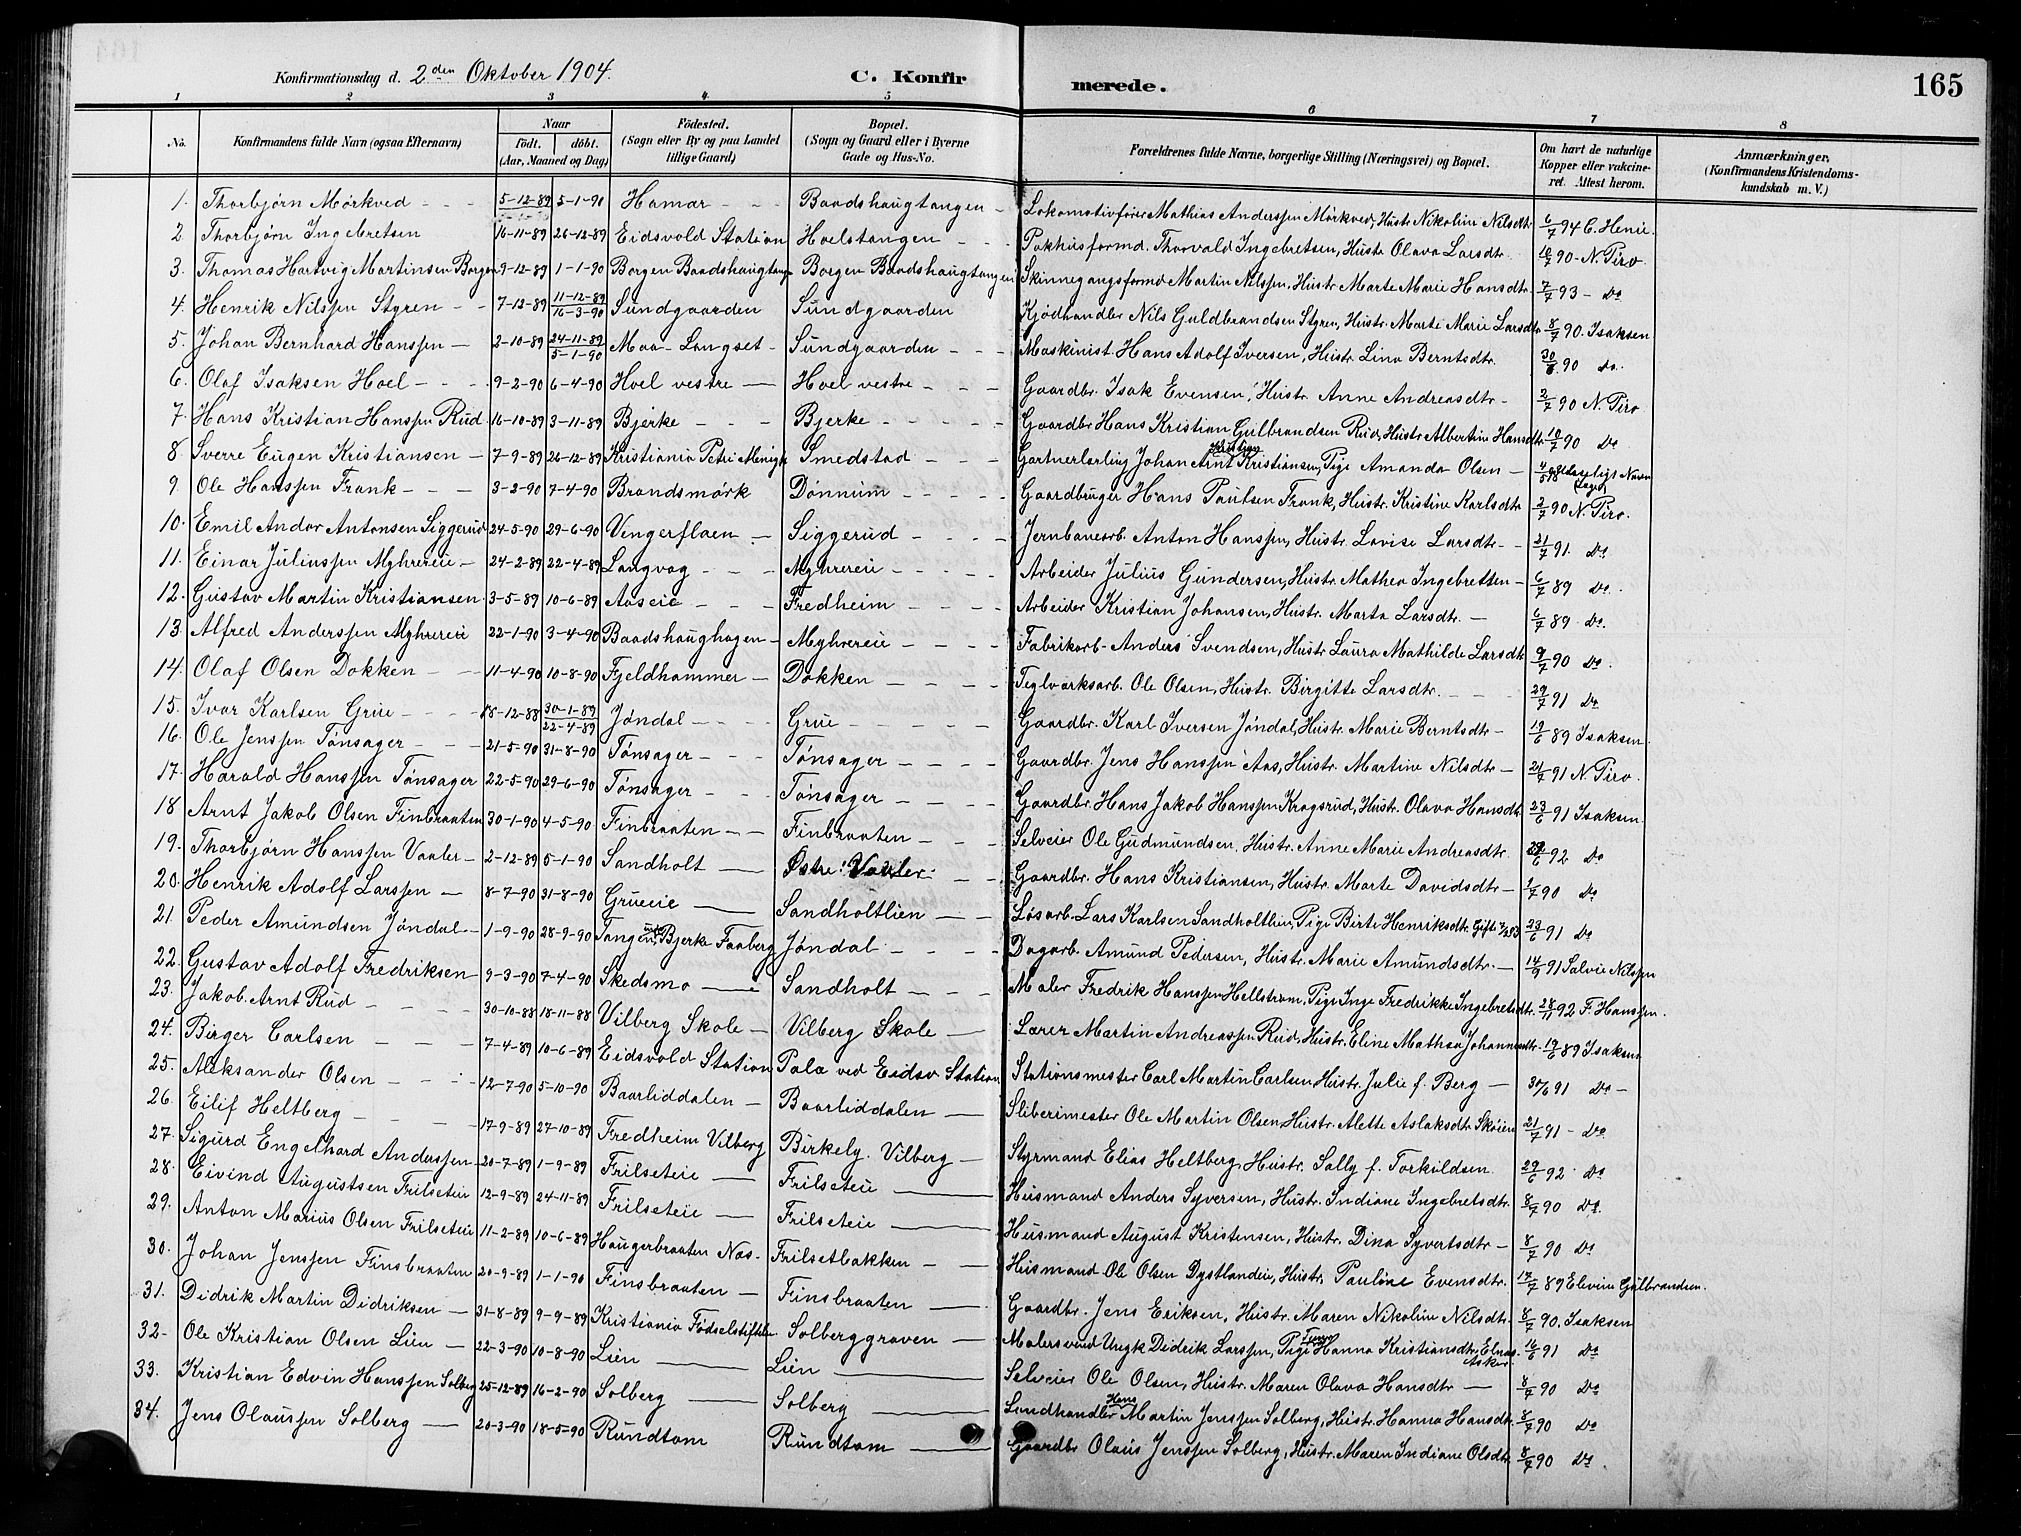 Konfirmationsdag d. 2den Oktober 1904. C. Konfir merede. 165
1 2 3 4 5 6 7 8
No. Konfirmandens fulde Navn (ogsaa Efternavn) Naar født. døbt. (Aar, Maaned og Dag) Fødested. (Sogn eller By og paa Landet tillige Gaard) Bopæl. (Sogn og Gaard eller i Byerne Gade og Hus-No. Forældrenes fulde Navne, borgerlige Stilling (Næringsvei) og Bopæl. Om havt de naturlige Kopper eller vakcineret. Attest herom. Anmærkninger, (Konfirmandens Kristendomskundskab m. V.)
1. Thorbjørn Mørkved - - - 5-12-89 5-1-90 Hamar - - - Baadshaugtangen - Lokomotivfører Mathias Anderssen Mørkved, Hustr. Nikoline Nilsdtr. 6/7 94 C. Henie.
2. Thorbjørn Ingebretsen 16-11-89 26-12-89 Eidsvold Station Hoelstangen - - - Pakhusformd. Thorvald Ingebretsen, Hustr. Olava Larsdtr. 10/7 90 - N. Piro.
3. Thomas Hartvig Martinsen Borgen 9-12-89 1-1-90 Borgen Baadshaugtangen Borgen Baadshaugtangen Skinnegangsformd Martin Nilssen, Hustr. Marte Marie Hansdtr. 7/7 93 - Do
4. Henrik Nilssen Styren - - 7-12-89 11-12-89 16-3-90 Sundgaarden Sundgaarden Kjødhandler Nils Guldbrandsen Styren, Hustr. Marte Marie Larsdtr. 8/7 90. Isaksen
5. Johan Bernhard Hanssen - 2-10-89 24-11-89 5-1-90 Maa- Langset - Sundgaarden - - - Maskinist Hans Adolf Iversen, Hustr. Lina Berntsdtr. 30/6 90 Do.
6. Olaf Isaksen Hoel - - - 9-2-90 6-4-90 Hoel vestre - Hoel vestre - - - Gaardbr. Isak Evensen, Hustr. Anne Andreasdtr - 2/7 90 N. Piro
7. Hans Kristian Hanssen Rud 16-10-89 3-11-89 Bjerke - - - Bjerke - - - - Gaardbr Hans Kristian Gulbrandsen Rud, Hustr Albertine Hansdtr 10/7 90 Do
8. Sverre Eugen Kristiansen - 7-9-89 26-12-89 Kristiania Petri Menigh Smedstad - - - Gartnerlærling Johan Arnt Kristian Kristiansen, Pige Amanda Olsen -
9. Ole Hanssen Frank - - - 3-2-90 7-4-90 Brandsmørk Dønnum - - - - Gaardbruger Hans Paulsen Frank, Hustr. Kristine Karlsdtr 2/7 90 N. Piro.
10. Emil Andor Antonsen Siggerud 24-5-90 29-6-90 Vengerflaen - Siggerud - - - - Jernbanearb. Anton Hanssen, Hustr. Lovise Larsdtr - - 21/7 91. Do
11. Einar Juliussen Myhrereie - 24-2-89 22-4-89 Langvag - - - Myhrereie - - - - Arbeider Julius Gundersen, Hustr. Mathea Ingebretsen - 6/7 89 Do.
12. Gustav Martin Kristiansen. 3-5-89 10-6-89 Aaseie - - - Fredheim - - - - Arbeider Kristian Johansen, Hustr. Marta Larsdtr. - 6/7 89 Do.
13. Alfred Anderssen Myhrereie 22-1-90 3-4-90 Baadshaughagen - Myhrereie - - - - Fabrikarb - Anders Svendsen, Hustr Laura Mathilde Larsdtr 9/7 90 Do.
14. Olaf Olsen Dokken - - 11-4-90 10-8-90 Fjeldhammer - Dokken - - - - Teglværksarb. Ole Olsen, Hustr. Birgitte Larsdtr. - - - 29/7 91 Do
15. Ivar Karlsen Grue - - - 18-12-88 30-1-89 22-4-89 Jøndal - - - - Grue - - - - - Gaardbr. Karl Iversen Jøndal, Hustr. Marie Berntsdtr - 19/6 89 Isaksen.
16. Ole Jenssen Tønsager - - - 21-5-90 31-8-90 Tønsager - - - Tønsager - - - - Gaardbr. Jens Hanssen Aas, Hustr. Martine Nilsdtr - 21/7 91 N. Piro.
17. Harald Hanssen Tønsager 22-5-90 29-6-90 Tønsager - - Tønsager - - - - Gaardbr. Hans Jakob Hanssen Kragsrud, Hustr. Olava Hansdtr 23/6 91 Isaksen.
18 Arnt Jakob Olsen Finbraaten 30-1-90 4-5-90 Finbraaten - - Finbraaten - - - Selveier Ole Gudmundsen, Hustr. Anne Marie Andreasdtr 29/6 92 Do
19. Thorbjørn Hanssen Vaaler - 2-12-89 5-1-90 Sandholt - Østre Vaaler - - Gaardbr. Hans Kristiansen, Hustr. Marte Davidsdtr - 1/7 90 Do
20. Henrik Adolf Larssen - 8-7-90 31-8-90 Grueeie - Sandholtlien - - Løsarb. Lars Karlsen Sandholtlien, Pige Birte Henriksdtr. 23/6 91 Do
21. Peder Amundsen Jøndal - 1-9-90 28-9-90 Tangen Bjerke Faaberg Jøndal - - - - Dagarb. Amund Pedersen, Hustr. Marie Amundsdtr. - 14/9 91 Salvie Nilssen
22. Gustav Adolf Fredriksen 9-3-90 7-4-90 Skedsmo - Sandholt - - - Maler Fredrik Hanssen Hellstrøm, Pige Inge Fredrikke Ingebretsdtr. 28/11 92 F. Hanssen.
23. Jakob Arnt Rud - - - 30-10-88 18-11-88 Vilberg Skole - Vilberg Skole - Lærer Martin Andreassen Rud, Hustr. Eline Mathea Johannesdtr. 19/6 89 Isaksen
24. Birger Carlsen - - - 7-4-89 10-6-89 Eidsvold Station Pala ved Eidsv Station Stationsmester Carl Martin Carlsen Hustr. Julie f. Berg - 30/6 91 Do -
25. Aleksander Olsen - - - 12-7-90 5-10-90 Baarliddalen - Baarliddalen - Sliberimester Ole Martin Olsen, Hustr. Alette Aslaksdtr. Skøien 21/7 91 - Do
26. Eilif Heltberg - - - 17-9-89 27-10-89 Fredheim Vilberg Birkely. Vilberg - Styrmand Elias Heltberg, Hustr. Sally f. Torkildsen. 29/6 92. Do
27. Sigurd Engelhard Anderssen - 20-7-89 1-9-89 Frilseteie - Frilseteie - Husmand Anders Syversen, Hustr. Indiane Ingebretsdtr. 8/7 90 Do.
28. Eivind Augustsen Frilseteie 12-9-89 24-11-89 Frilseteie - Frilseteie - Husmand August Kristensen, Hustr. Dina Syvertsdtr - 8/7 90 Do
29. Anton Marius Olsen Frilseteie 11-2-89 10-6-89 Haugerbraaten Næs - Frilsetbakken - - Husmand Ole Olsen Dystlandeie, Hustr. Pauline Evensdtr. 17/7 89 Elevine Gulbrandsen.
30. Johan Jenssen Finsbraaten 20-9-89 1-1-90 Finsbraaten - Finsbraaten - Gaardbr. Jens Eriksen, Hustr. Maren Nikoline Nilsdtr. 8/7 90. Isaksen
31. Didrik Martin Didriksen - 31-8-89 9-9-89 Kristiania Fødselstiftelse Solberggraven - Malersvend Ungk Didrik Larssen, Pige Hanna Kristiansdtr, Asker 16/6 91 Do
32. Ole Kristian Olsen Lien - 22-3-90 10-8-90 Lien - Lien - Selveier Ole Olsen, Hustr. Maren Olava Hansdtr - 8/7 90 Do
33. Kristian Edvin Hanssen Solberg 25-12-89 16-2-90 Solberg - Solberg - Landhandler Hans Martin Jenssen Solberg, Hustr. Hanna Hansdtr. 8/7 90 Do
34. Jens Olaussen Solberg - 20-3-90 18-5-90 Rundtom Rundtom - Gaardbr Olaus Jenssen Solberg, Hustr. Maren Indiane Olsdtr. 8/7 90 Do.